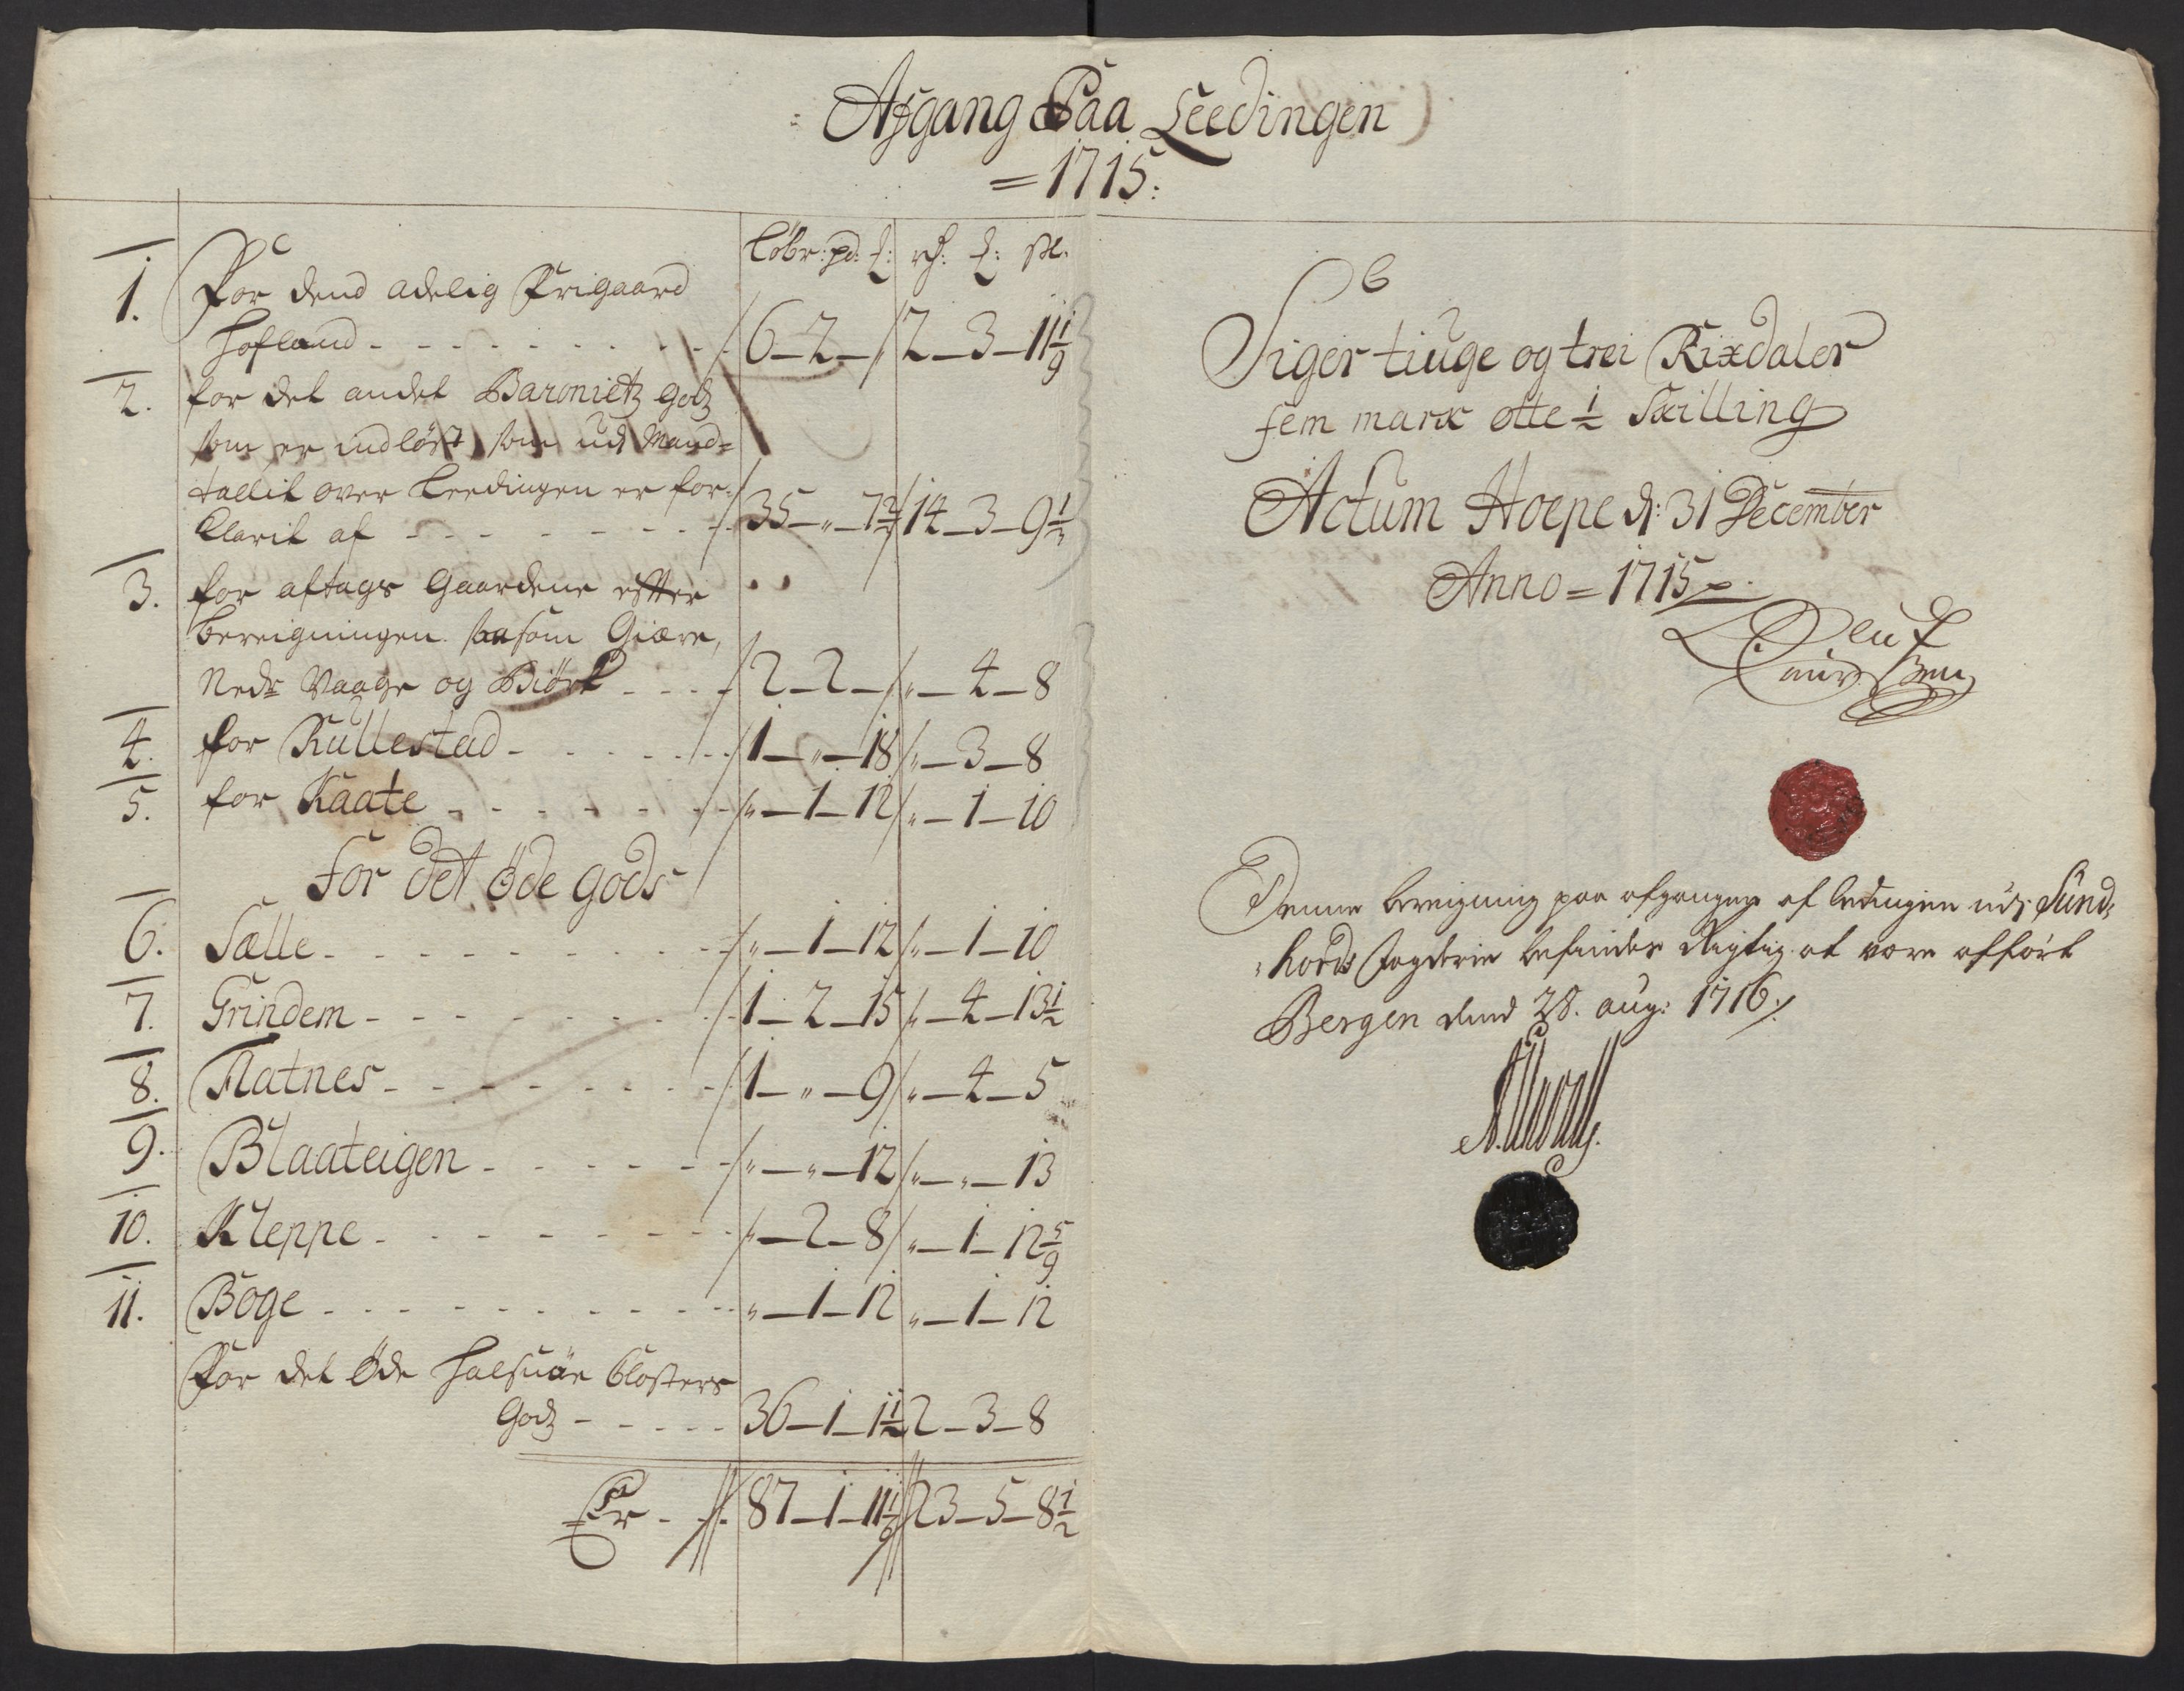 Afgang Paa Leedingen
= 1715:
Löbr: pd: : rd: : sk.
1. For dend adelig Frigaard
Hofland - - - 6 - 2 - " 2 - 3 - 11 1/9
2. for det andet Baronietz godz
som er indløst som udj Mand=
tallit over Leedingen er for=
klarit af - - - 35 - " - 7 1/2 14 - 3 - 9 1/2
3. for aftags Gaardene efter
bereigningen saasom Giære,
Nedr Vaage og Biørk - - - 2 - 2 - " " - 4 - 8
4. for Rullestad - - - 1 - " - 18 " - 3 - 8
5. for Kaate - - - " - 1 - 12 " - 1 - 10
For det öde gods
6. Sælle - - - " - 1 - 12 " - 1 - 10
7. Grindem - - - 1 - 2 - 15 " - 4 - 13 1/2
8. Flatnes - - - 1 - " - 9 " - 4 - 5
9. Blaateigen - - - " - " - 12 " - " - 13
10. Kleppe - - - " - 2 - 8 " - 1 - 12 5/9
11. Boge - - - " - 1 - 12 " - 1 - 12
For det Øde Halsnøe Closters
Godz - - - 36 - 1 - 1 1/2 2 - 3 - 8
Er - - 87 - 1 - 11 1/6 23 - 5 - 8 1/2
Siger tiuge og trei Rixdaler
fem mark otte 1/2 Skilling
Actum Hoepe d: 31 December
Anno = 1715
Oluf
Laurssen
Denne bereigning paa afgangen af leedingen udj Sund=
hords fogderie befindes rigtig at være afført
Bergen dend 28. aug: 1716